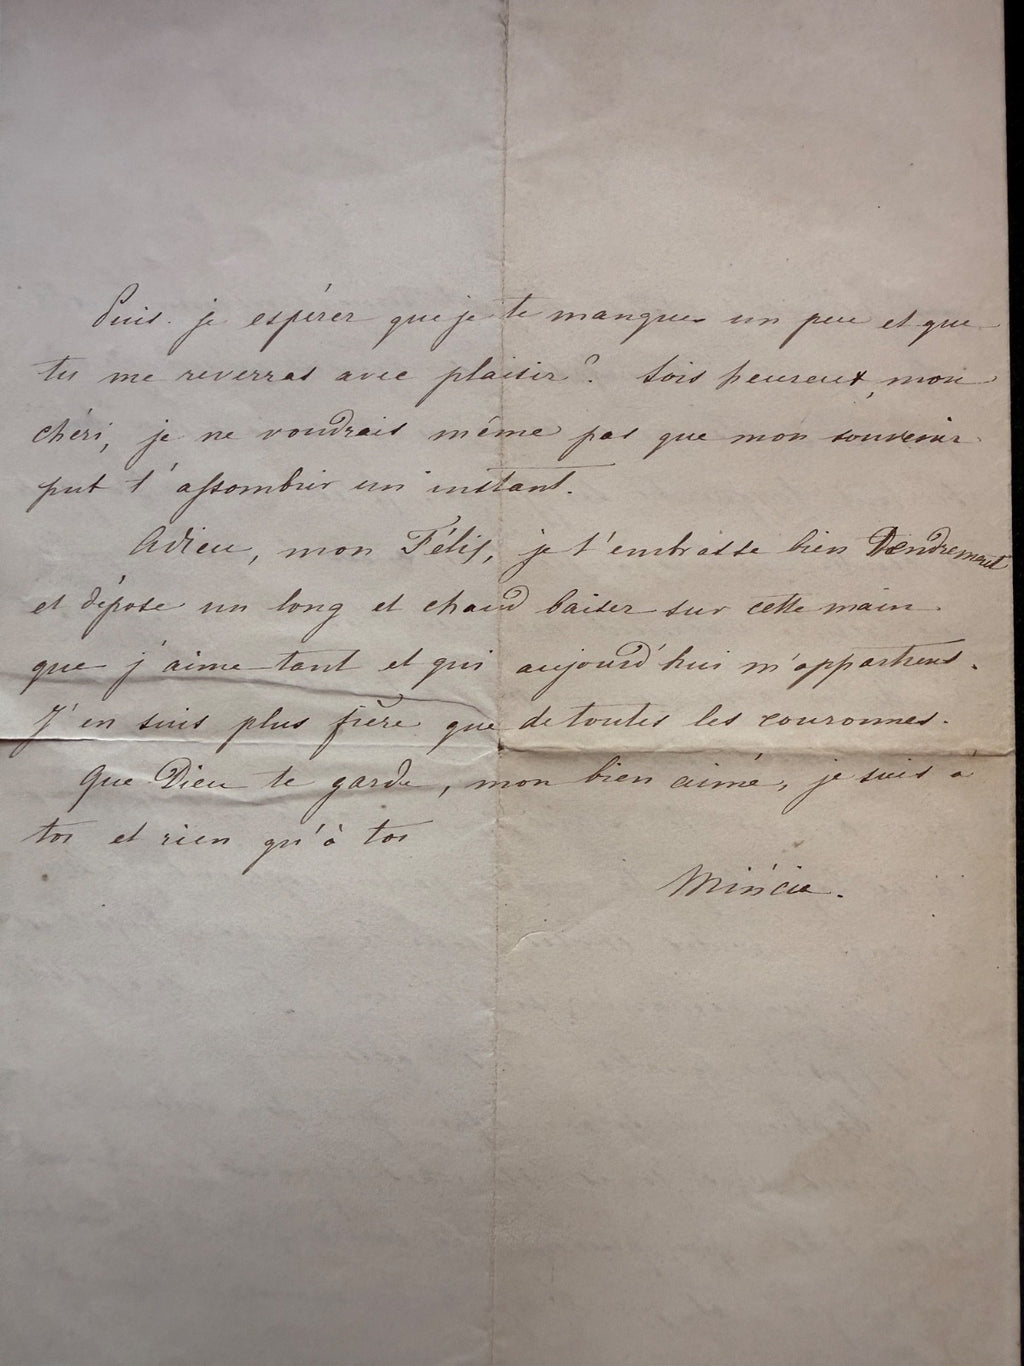 Puis-je espérer que je te manque un peu et que
tu me reverras avec plaisir? Sois heureux, mon
chéri, je ne voudrais même pas que mon souvenir
put t'assombrir un instant.
Adieu, mon Félix, je t'embrasse bien tendrement
et dépose un long et chaud baiser sur cette main
que j'aime tant et qui aujourd'hui m'appartient.
J'en suis plus fière que de toutes les couronnes.
Que Dieu te garde, mon bien aimé, je suis à
toi et rien qu'à toi